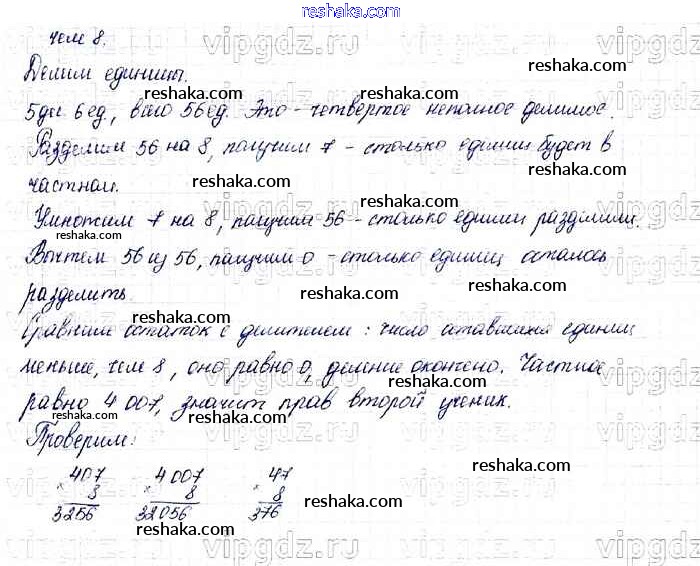 reshaka.com
чем 8.
Делим единицы.
5 дес 6 ед, всего 56 ед. Это - четвертое неполное делимое.
Разделим 56 на 8, получим 7 - столько единиц будет в
частном.
Умножим 7 на 8, получим 56 - столько единиц разделили.
Вычтем 56 из 56, получим 0 - столько единиц осталось
разделить.
Сравним остаток с делителем: число оставшихся единиц
меньше, чем 8, оно равно 0, деление окончено. Частное
равно 4 007, значит прав второй ученик.
Проверим:
407 4 007 47
× 8 × 8 × 8
3256 32056 376